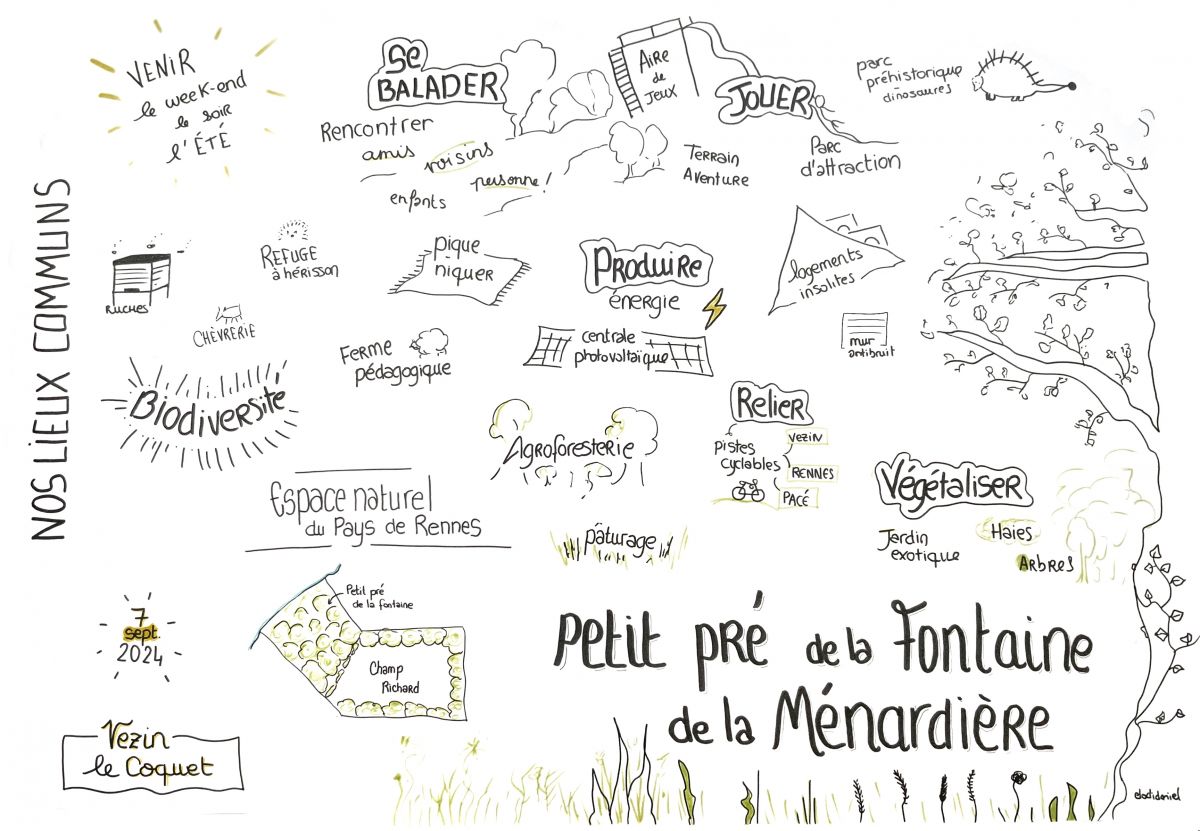 NOS LIEUX COMMUNS
VENIR
le week-end
le soir
l'ÉTÉ
Se
BALADER
Rencontrer
amis
voisins
personne !
enfants
AIRE
de
JEUX
JOUER
parc
préhistorique
dinosaures
TERRAIN
AVENTURE
PARC
d'attraction
RUCHES
REFUGE
à hérisson
CHÈVRERIE
pique
niquer
PRODUIRE
énergie
logements
insolites
centrale
photovoltaïque
mur
antibruit
FERME
pédagogique
BIODIVERSITÉ
AGROFORESTERIE
Relier
pistes
cyclables
VEZIN
RENNES
PACÉ
Végétaliser
Jardin
exotique
Haies
ARBRES
Espace naturel
du Pays de Rennes
pâturage
7
sept.
2024
Petit pré
de la fontaine
Champ
Richard
Petit pré de la Fontaine
de la Ménardière
Vezin
le Coquet